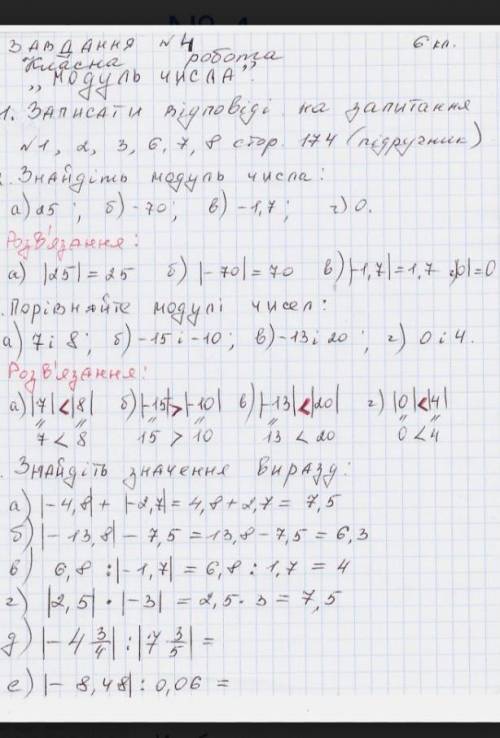 ЗАВДАННЯ №4 6 кл.
Класна робота
„МОДУЛЬ ЧИСЛА".
1. Записати відповіді на запитання
№1, 2, 3, 6, 7, 8 стор. 174 (підручник)
. Знайдіть модуль числа:
а) 25; б) -70; в) -1,7; г) 0.
Розв'язання:
а) |25| = 25 б) |-70| = 70 в) |-1,7| = 1,7 г) |0| = 0
. Порівняйте модулі чисел:
а) 7 і 8; б) -15 і -10; в) -13 і 20; г) 0 і 4.
Розв'язання:
а) |7| < |8| б) |-15| > |-10| в) |-13| < |20| г) |0| < |4|
7 < 8 15 > 10 13 < 20 0 < 4
. Знайдіть значення виразу:
а) |-4,8| + |-2,7| = 4,8 + 2,7 = 7,5
б) |-13,8| - 7,5 = 13,8 - 7,5 = 6,3
в) 6,8 : |-1,7| = 6,8 : 1,7 = 4
г) |2,5| · |-3| = 2,5 · 3 = 7,5
д) |-4 3/4| : |7 3/5| =
е) |-8,48| : 0,06 =